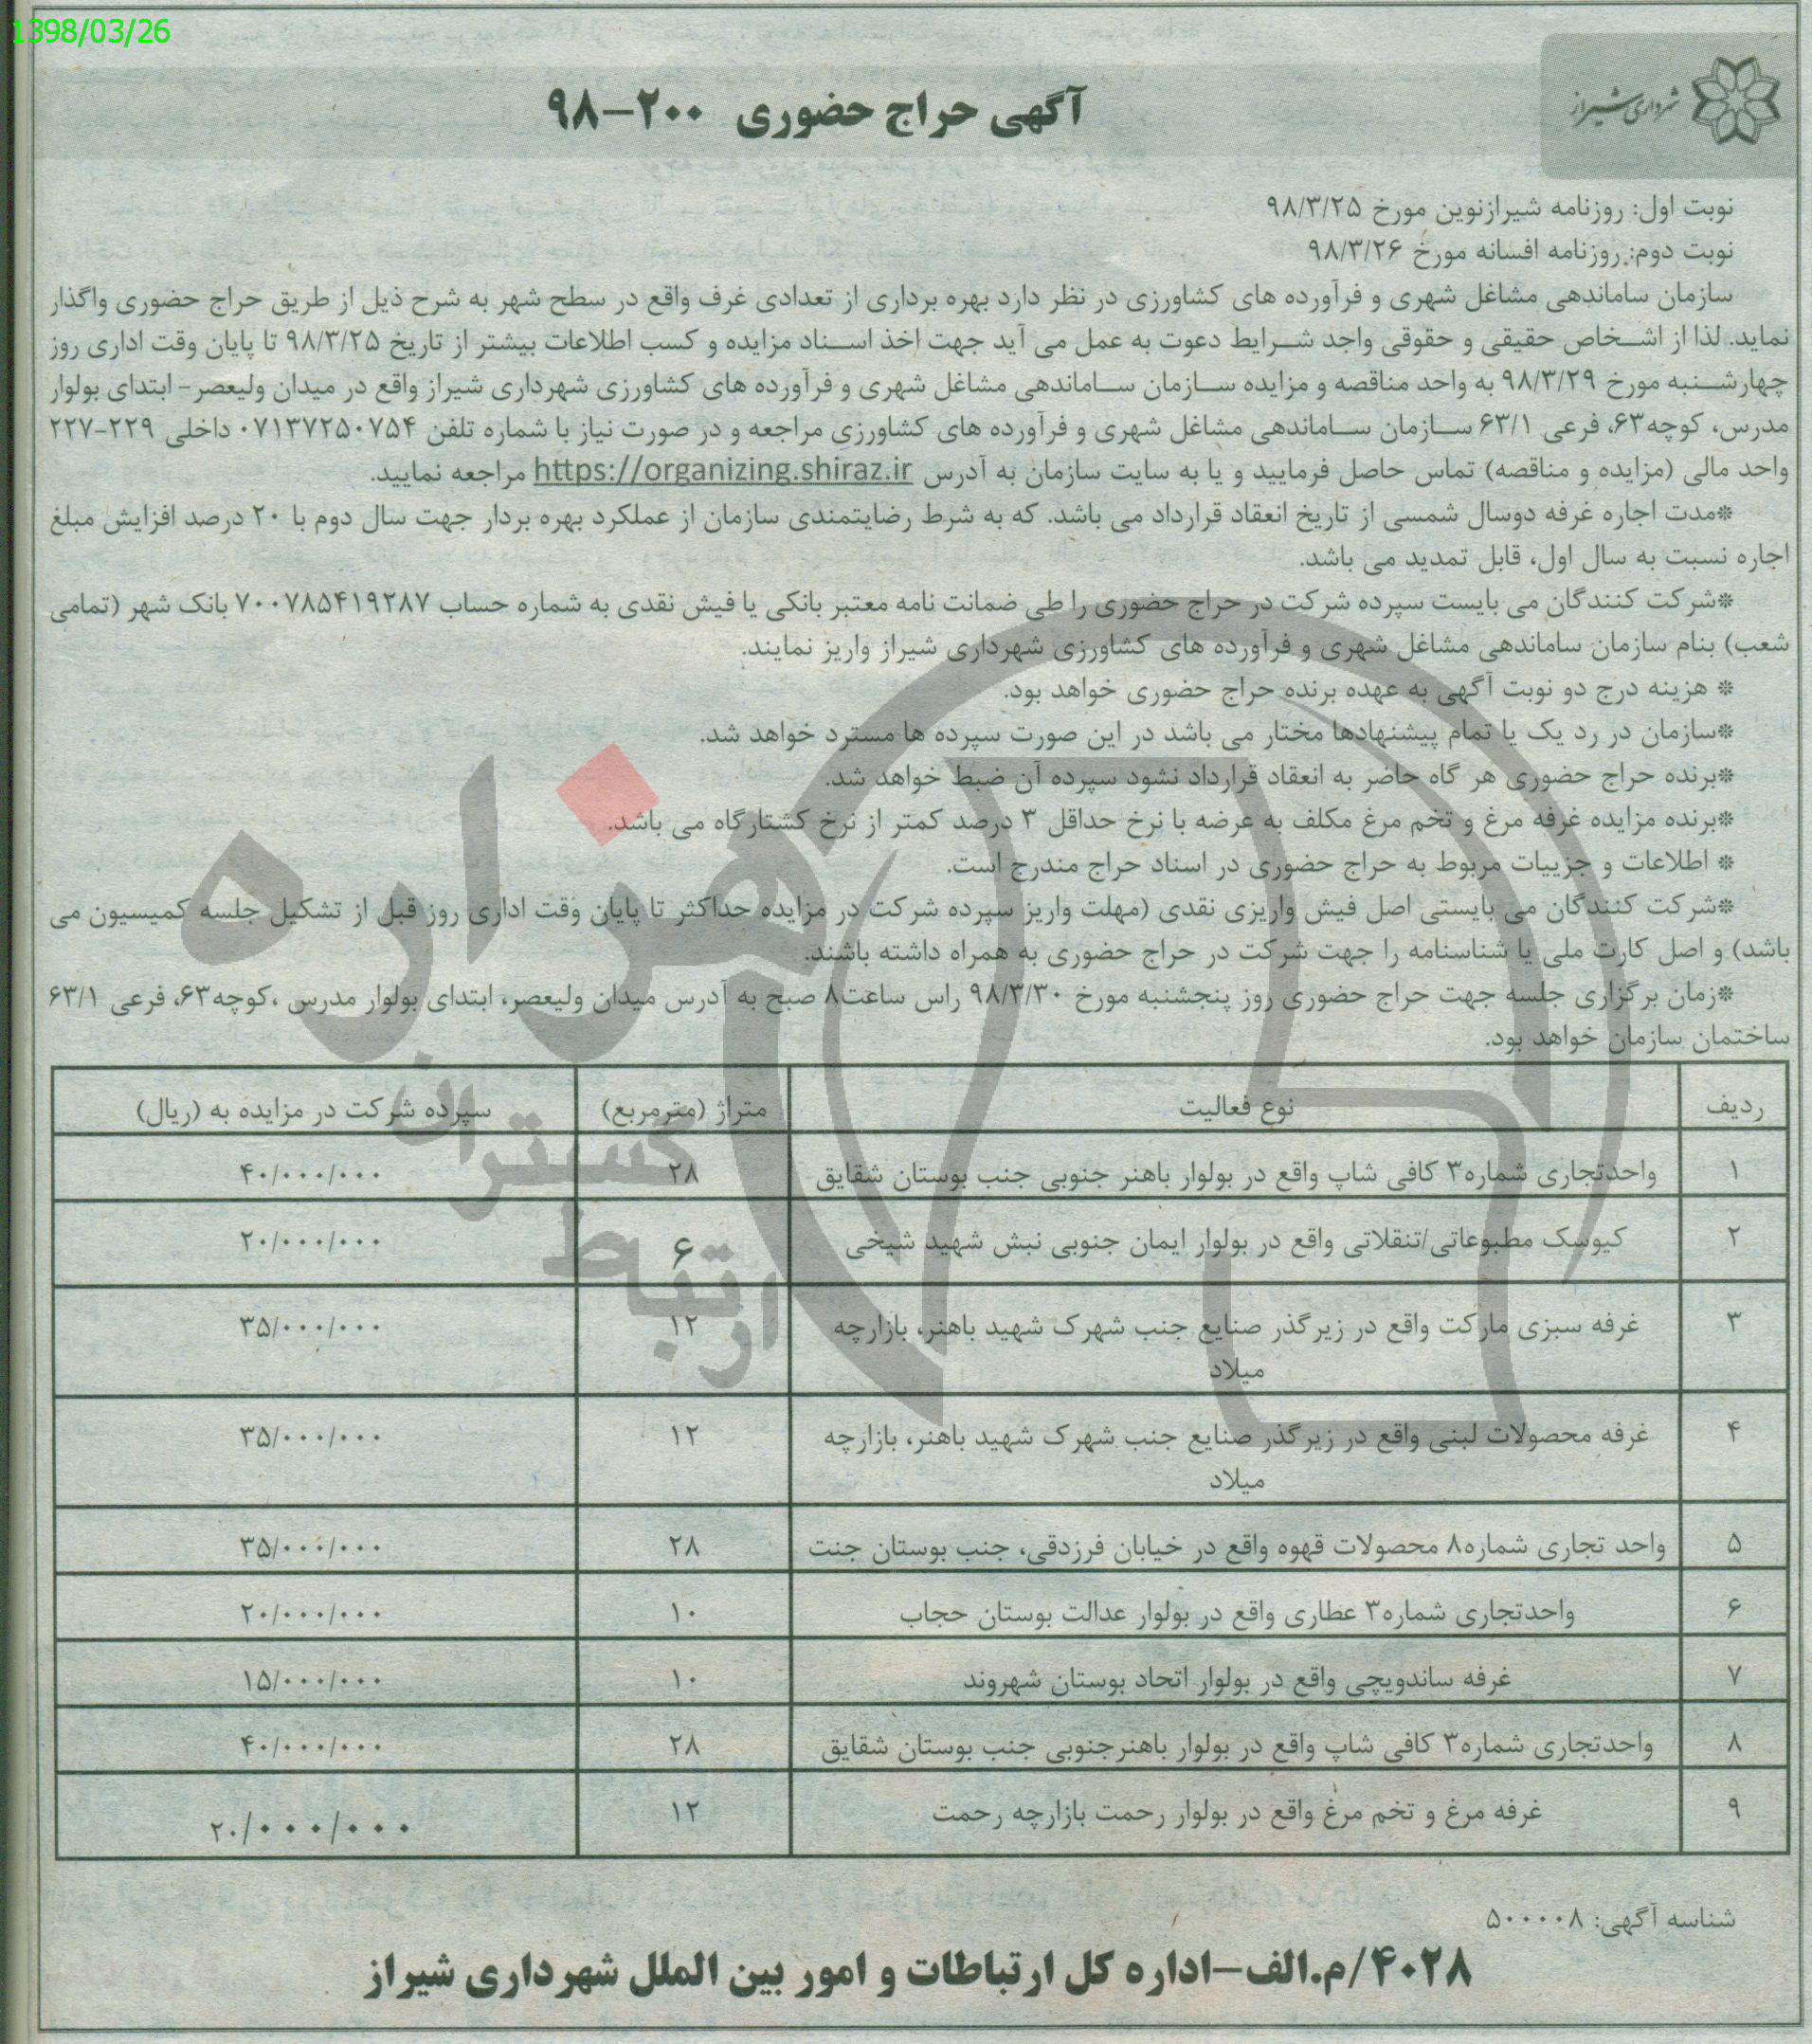 1398/03/26
شهرداری شیراز
آگهی حراج حضوری ۲۰۰-۹۸
نوبت اول: روزنامه شیرازنوین مورخ ۹۸/۳/۲۵
نوبت دوم: روزنامه افسانه مورخ ۹۸/۳/۲۶
سازمان ساماندهی مشاغل شهری و فرآورده های کشاورزی در نظر دارد بهره برداری از تعدادی غرف واقع در سطح شهر به شرح ذیل از طریق حراج حضوری واگذار
نماید. لذا از اشخاص حقیقی و حقوقی واجد شرایط دعوت به عمل می آید جهت اخذ اسناد مزایده و کسب اطلاعات بیشتر از تاریخ ۹۸/۳/۲۵ تا پایان وقت اداری روز
چهارشنبه مورخ ۹۸/۳/۲۹ به واحد مناقصه و مزایده سازمان ساماندهی مشاغل شهری و فرآورده های کشاورزی شهرداری شیراز واقع در میدان ولیعصر- ابتدای بولوار
مدرس، کوچه۶۳، فرعی ۶۳/۱ سازمان ساماندهی مشاغل شهری و فرآورده های کشاورزی مراجعه و در صورت نیاز با شماره تلفن ۰۷۱۳۷۲۵۰۷۵۴ داخلی ۲۲۹-۲۲۷
واحد مالی (مزایده و مناقصه) تماس حاصل فرمایید و یا به سایت سازمان به آدرس https://organizing.shiraz.ir مراجعه نمایید.
*مدت اجاره غرفه دوسال شمسی از تاریخ انعقاد قرارداد می باشد. که به شرط رضایتمندی سازمان از عملکرد بهره بردار جهت سال دوم با ۲۰ درصد افزایش مبلغ
اجاره نسبت به سال اول، قابل تمدید می باشد.
*شرکت کنندگان می بایست سپرده شرکت در حراج حضوری را طی ضمانت نامه معتبر بانکی یا فیش نقدی به شماره حساب ۷۰۰۷۸۵۴۱۹۲۸۷ بانک شهر (تمامی
شعب) بنام سازمان ساماندهی مشاغل شهری و فرآورده های کشاورزی شهرداری شیراز واریز نمایند.
* هزینه درج دو نوبت آگهی به عهده برنده حراج حضوری خواهد بود.
*سازمان در رد یک یا تمام پیشنهادها مختار می باشد در این صورت سپرده ها مسترد خواهد شد.
*برنده حراج حضوری هر گاه حاضر به انعقاد قرارداد نشود سپرده آن ضبط خواهد شد.
*برنده مزایده غرفه مرغ و تخم مرغ مکلف به عرضه با نرخ حداقل ۳ درصد کمتر از نرخ کشتارگاه می باشد.
* اطلاعات و جزییات مربوط به حراج حضوری در اسناد حراج مندرج است.
*شرکت کنندگان می بایستی اصل فیش واریزی نقدی (مهلت واریز سپرده شرکت در مزایده حداکثر تا پایان وقت اداری روز قبل از تشکیل جلسه کمیسیون می
باشد) و اصل کارت ملی یا شناسنامه را جهت شرکت در حراج حضوری به همراه داشته باشند.
*زمان برگزاری جلسه جهت حراج حضوری روز پنجشنبه مورخ ۹۸/۳/۳۰ راس ساعت۸ صبح به آدرس میدان ولیعصر، ابتدای بولوار مدرس ،کوچه۶۳، فرعی ۶۳/۱
ساختمان سازمان خواهد بود.
ردیف نوع فعالیت متراژ (مترمربع) سپرده شرکت در مزایده به (ریال)
۱ واحدتجاری شماره۳ کافی شاپ واقع در بولوار باهنر جنوبی جنب بوستان شقایق ۲۸ ۴۰/۰۰۰/۰۰۰
۲ کیوسک مطبوعاتی/تنقلاتی واقع در بولوار ایمان جنوبی نبش شهید شیخی ۶ ۲۰/۰۰۰/۰۰۰
۳ غرفه سبزی مارکت واقع در زیرگذر صنایع جنب شهرک شهید باهنر، بازارچه ۱۲ ۳۵/۰۰۰/۰۰۰
میلاد
۴ غرفه محصولات لبنی واقع در زیرگذر صنایع جنب شهرک شهید باهنر، بازارچه ۱۲ ۳۵/۰۰۰/۰۰۰
میلاد
۵ واحد تجاری شماره۸ محصولات قهوه واقع در خیابان فرزدقی، جنب بوستان جنت ۲۸ ۳۵/۰۰۰/۰۰۰
۶ واحدتجاری شماره۳ عطاری واقع در بولوار عدالت بوستان حجاب ۱۰ ۲۰/۰۰۰/۰۰۰
۷ غرفه ساندویچی واقع در بولوار اتحاد بوستان شهروند ۱۰ ۱۵/۰۰۰/۰۰۰
۸ واحدتجاری شماره۳ کافی شاپ واقع در بولوار باهنرجنوبی جنب بوستان شقایق ۲۸ ۴۰/۰۰۰/۰۰۰
۹ غرفه مرغ و تخم مرغ واقع در بولوار رحمت بازارچه رحمت ۱۲ ۲۰/۰۰۰/۰۰۰
هزاره
ارتباط گستران
شناسه آگهی: ۵۰۰۰۰۸
۴۰۲۸/م.الف-اداره کل ارتباطات و امور بین الملل شهرداری شیراز